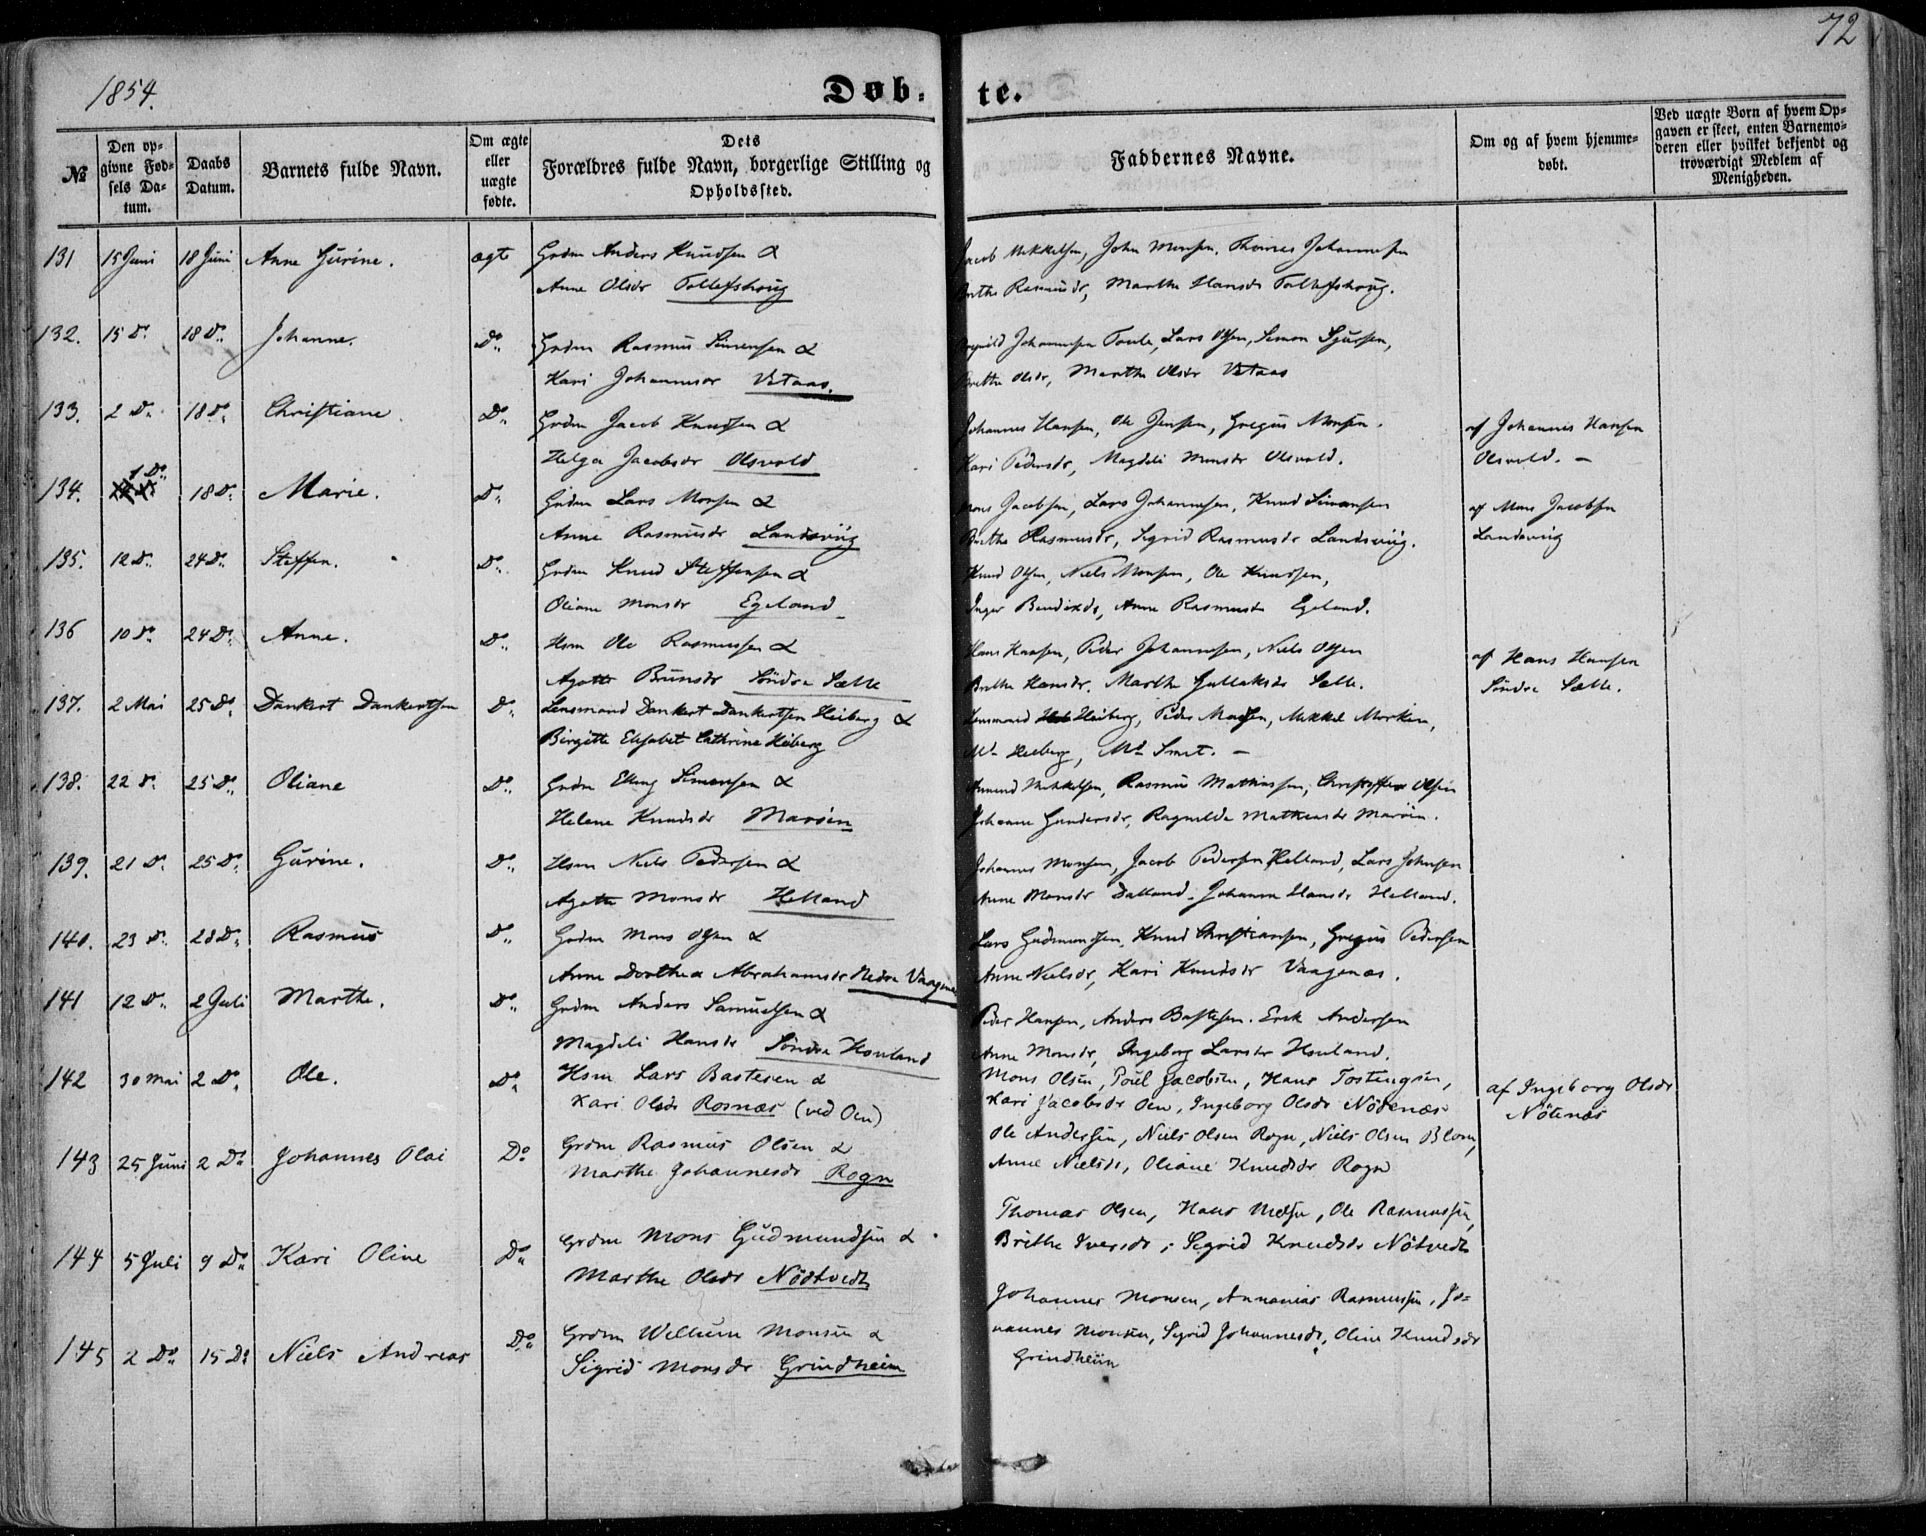 72
1854.
Døb-te.
№
Den opgivne Fødsels Datum.
Daabs Datum.
Barnets fulde Navn.
Om ægte eller uægte fødte.
Dets Forældres fulde Navn, borgerlige Stilling og Opholdssted.
Faddernes Navne.
Om og af hvem hjemmedøbt.
Ved uægte Børn af hvem Opgaven er skeet, enten Barnemoderen eller hvilket bekjendt og troværdigt Medlem af Menigheden.
131 15 Juni 18 Juni Anne Gurine. ægte Grdm Anders Knudsen &
Anne Olsdr Tollefshoug
Jacob Mikkelsen, John Monsen, Thomes Johannesen
Brithe Rasmusdr, Marthe Hansdr Tollefshoug.
132. 15 Do 18 Do Johanne. Do Grdm Rasmus Simensen &
Kari Johannesdr Vetaas.
Johannesen Toule, Lars Olsen, Simon Sjursen,
Brithe Olsdr, Marthe Olsdr Vetaas
133. 2 Do 18 Do Christiane. Do Grdm Jacob Knudsen &
Helga Jacobsdr Olsvold
Johannes Hansen, Ole Jensen, Gregus Monsen.
Kari Pedersdr, Magdeli Monsdr Olsvold.
af Johannes Hansen
Olsvold. —
134. 1 Do 18 Do Marie. Do Grdm Lars Monsen &
Anne Rasmusdr Landsviig
Mons Jacobsen, Lars Johannesen, Knud Simonsen
Brithe Rasmusdr, Sigrid Rasmusdr Landsviig.
af Mons Jacobsen
Landsviig
135. 12 Do 24 Do Steffen. Do Grdm Knud Steffensen &
Oliane Monsdr Egeland
Knud Olsen, Niels Monsen, Ole Knudsen,
Inger Bendixdr, Anne Rasmusdr Egeland.
136 10 Do 24 Do Anne. Do Hsm Ole Rasmussen &
Agathe Brunsdr Söndre Sætte
Hans Hansen, Peder Johannesen, Niels Olsen
Brithe Hansdr, Marthe Gullaksdr Sætte.
af Hans Hansen
Söndre Sætte.
137. 2 Mai 25 Do Dankert Dankertsen Do Lensmand Dankert Dankertsen Heiberg &
Birgitte Elisabet Cathrine Heiberg
Lensmand Heiberg, Peder Madsen, Mikkel Morken,
Md Heiberg, Md Smit. —
138. 22 Do 25 Do Oliane Do Grdm Elling Simensen &
Helene Knudsdr Maröen
Amund Mikkelsen, Rasmus Mathiassen, Christoffer Olsen
Johanne Gundersdr, Ragnilde Mathiasdr Maröen.
139. 21 Do 25 Do Gurine. Do Hsm Niels Pedersen &
Agathe Monsdr Helland
Johannes Monsen, Jacob Pedersen Helland, Lars Johnsen
Anne Monsdr Dalland, Johanne Hansdr Helland.
140. 23 Do 28 Do Rasmus Do Grdm Mons Olsen &
Anne Dorthea Abrahamsdr Nedre Vaagenes
Lars Gudmundsen, Knud Christiansen, Gregus Pedersen
Anne Nielsdr, Kari Knudsdr Vaagenæs.
141 12 Do 2 Juli Marthe. Do Grdm Anders Samuelsen &
Magdeli Hansdr Söndre Houland
Peder Hansen, Anders Bastesen. Erik Andersen
Anne Monsdr, Ingeborg Larsdr Houland.
142 30 Mai 2 Do Ole. Do Hsm Lars Bastesen &
Kari Olsdr Rosnæs (ved Oen)
Mons Olsen, Poul Jacobsen, Hans Tostengsen,
Kari Jacobsdr Oen, Ingeborg Olsdr Nötenæs
af Ingeborg Olsdr
Nötenæs
143 25 Juni 2 Do Johannes Olai Do Grdm Rasmus Olsen &
Marthe Johannesdr Rogn
Ole Andersen, Niels Olsen Rogn, Niels Olsen Blom,
Anne Nielsdr, Oliane Knudsdr Rogn
144 5 Juli 9 Do Kari Oline Do Grdm Mons Gudmundsen &
Marthe Olsdr Nödtvedt
Thomas Olsen, Hans Nielsen, Ole Rasmussen,
Brithe Iversdr, Sigrid Knudsdr Nötvedt
145 2 Do 15 Do Niels Andreas Do Grdm Wellum Monsen &
Sigrid Monsdr Grindheim
Johannes Monsen, Annanias Rasmussen, Jo-
hannes Monsen, Sigrid Johannesdr, Oline Knudsdr
Grindheim